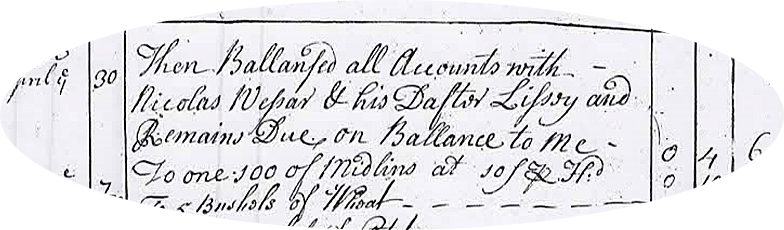 pril ye 30 Then Ballansed all Accounts with –
Nicolas Wessar & his Daster Lissey and
Remains Due on Ballance to Me - 0 4 6
To one 100 of Midlins at 10s ⅌ Hd 0
Bushols of Whoat – – – – – –